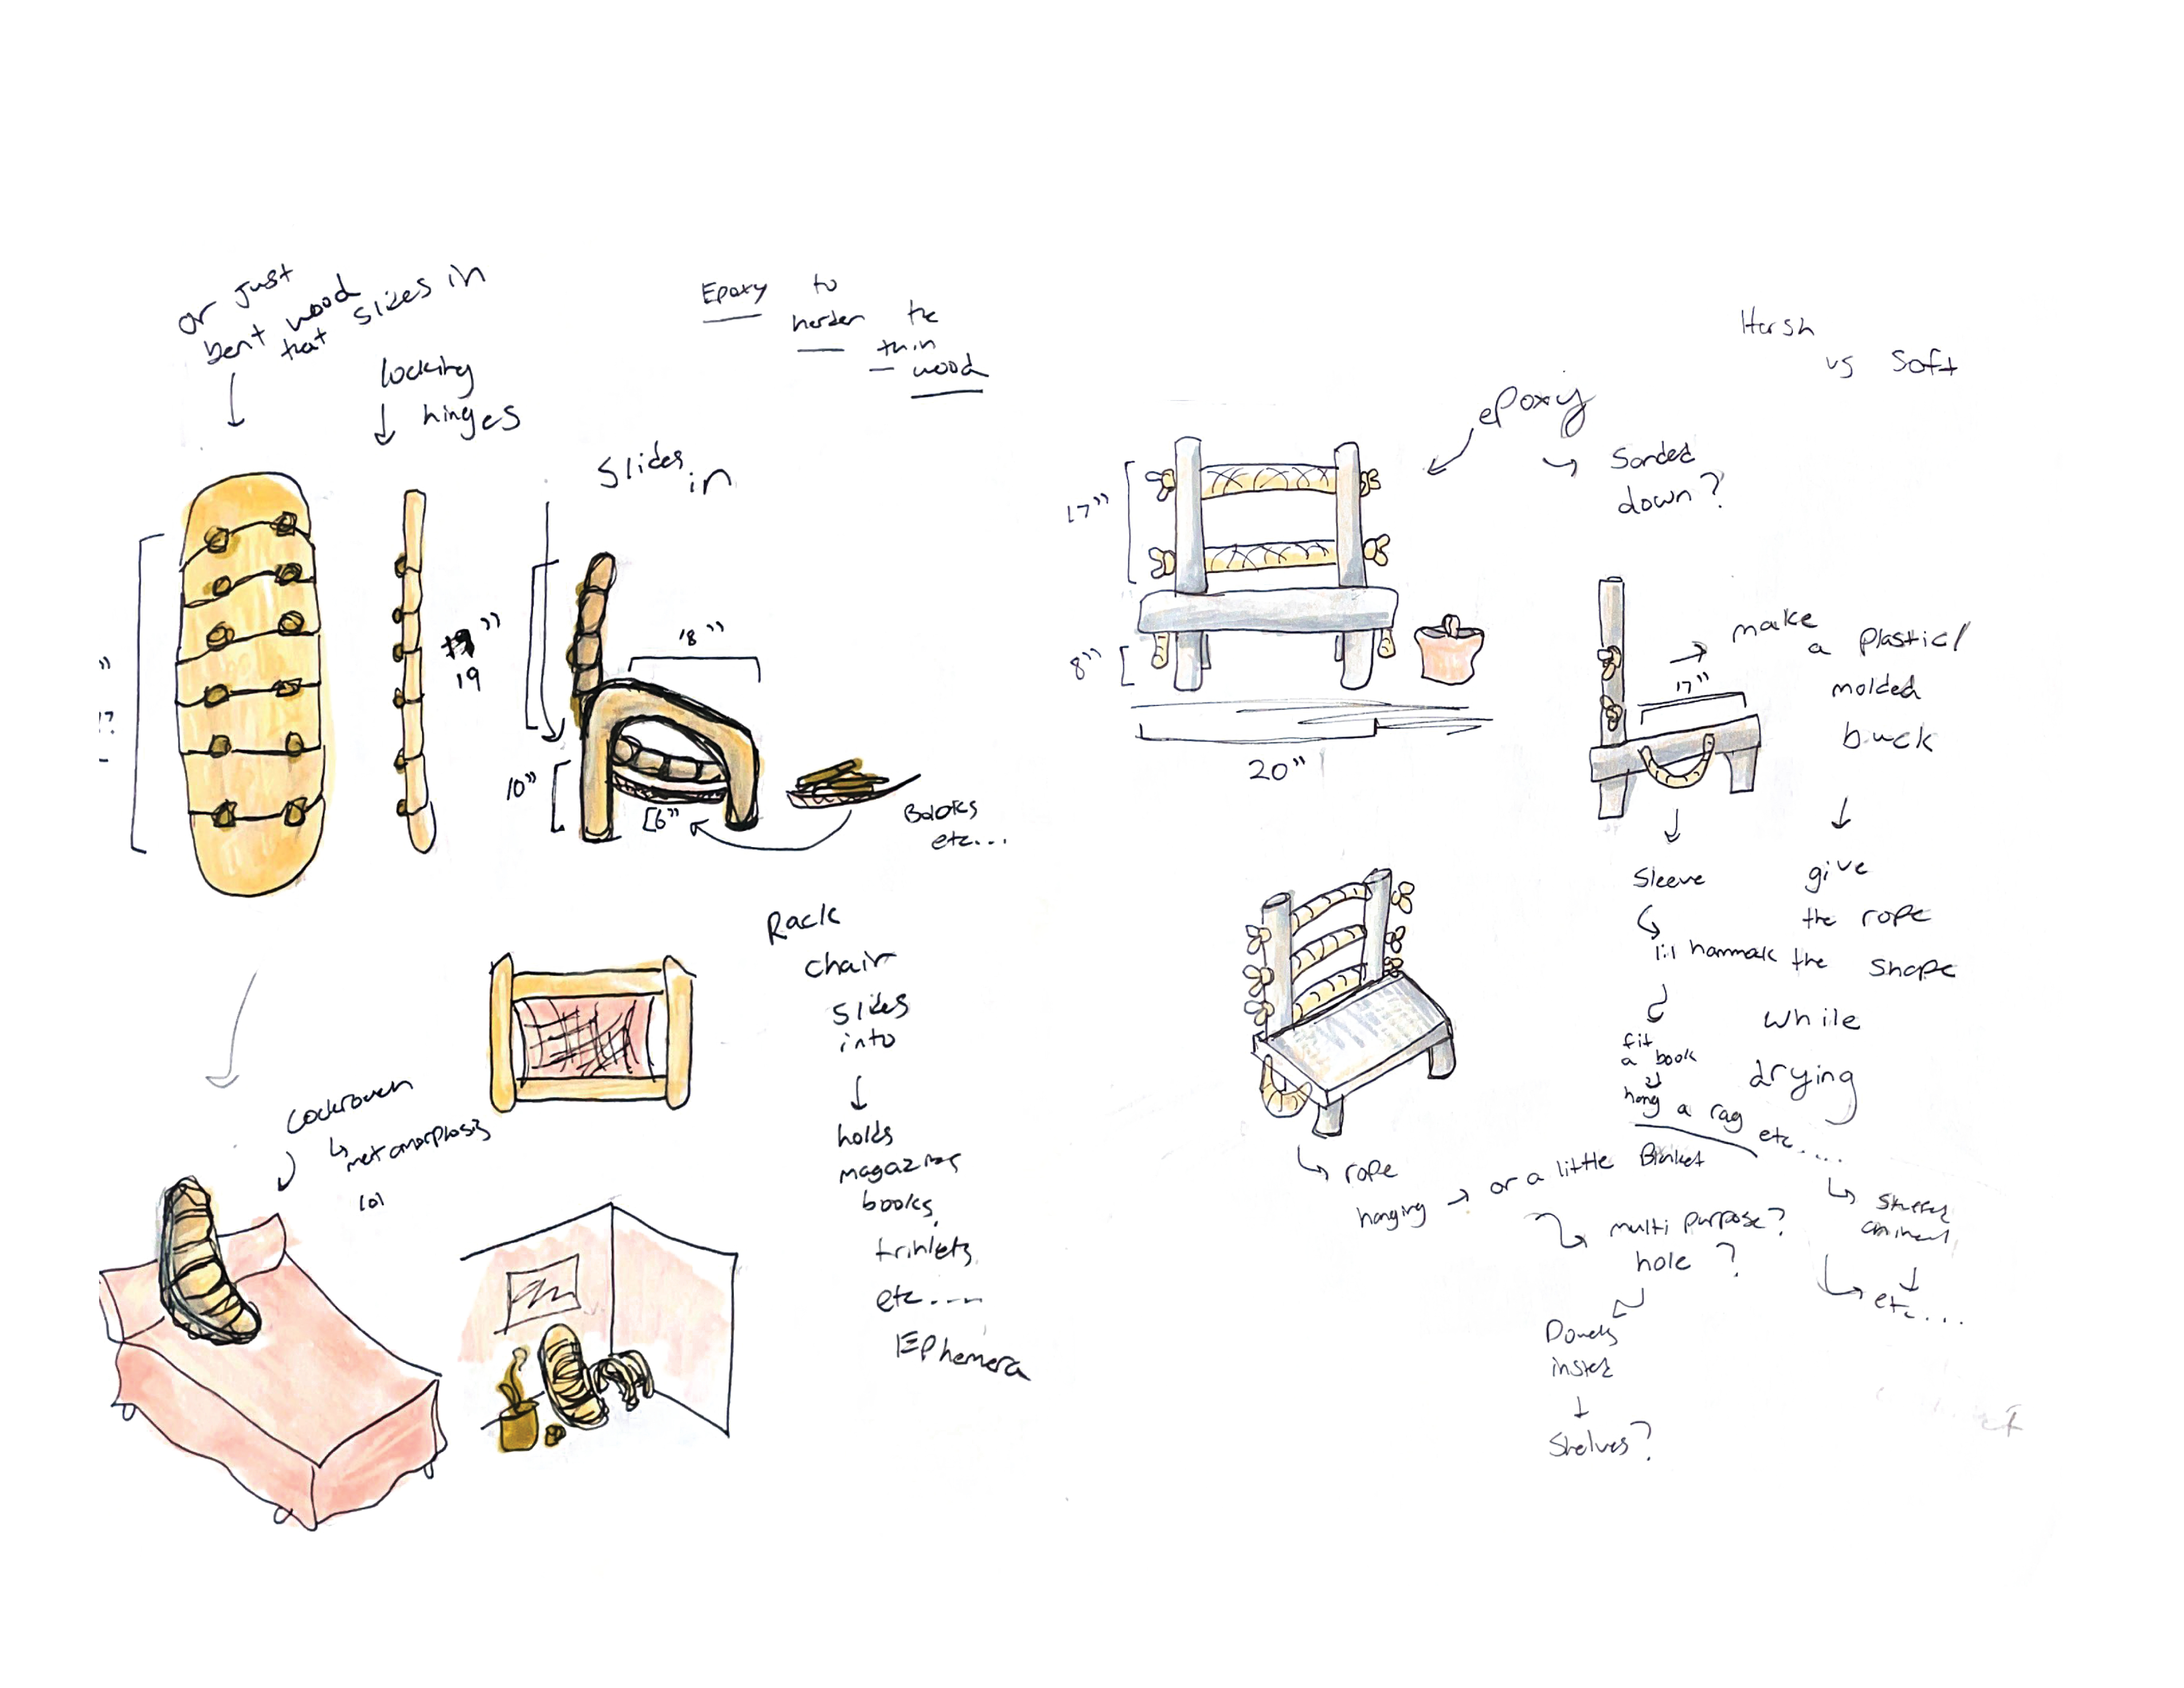 or just
bent wood
that slides in
locking
hinges
Epoxy to
harden the
thin
wood
Slides
in
17"
19
18"
10"
[6"
Books
etc...
Rack
chair
slides
into
holds
magazines
books,
trinkets,
etc....
Ephemera
Cockroach
metamorphosis
lol
Harsh
vs Soft
epoxy
Sanded
down?
17"
8"
20"
17"
make
a plastic/
molded
buck
give
the rope
the shape
while
drying
Sleeve
lil hammak
fit
a book
hang a rag etc.....
rope
hanging → or a little Blanket
multi purpose?
hole?
Dowels
insted
Shelves?
Stuffed
animal
etc...